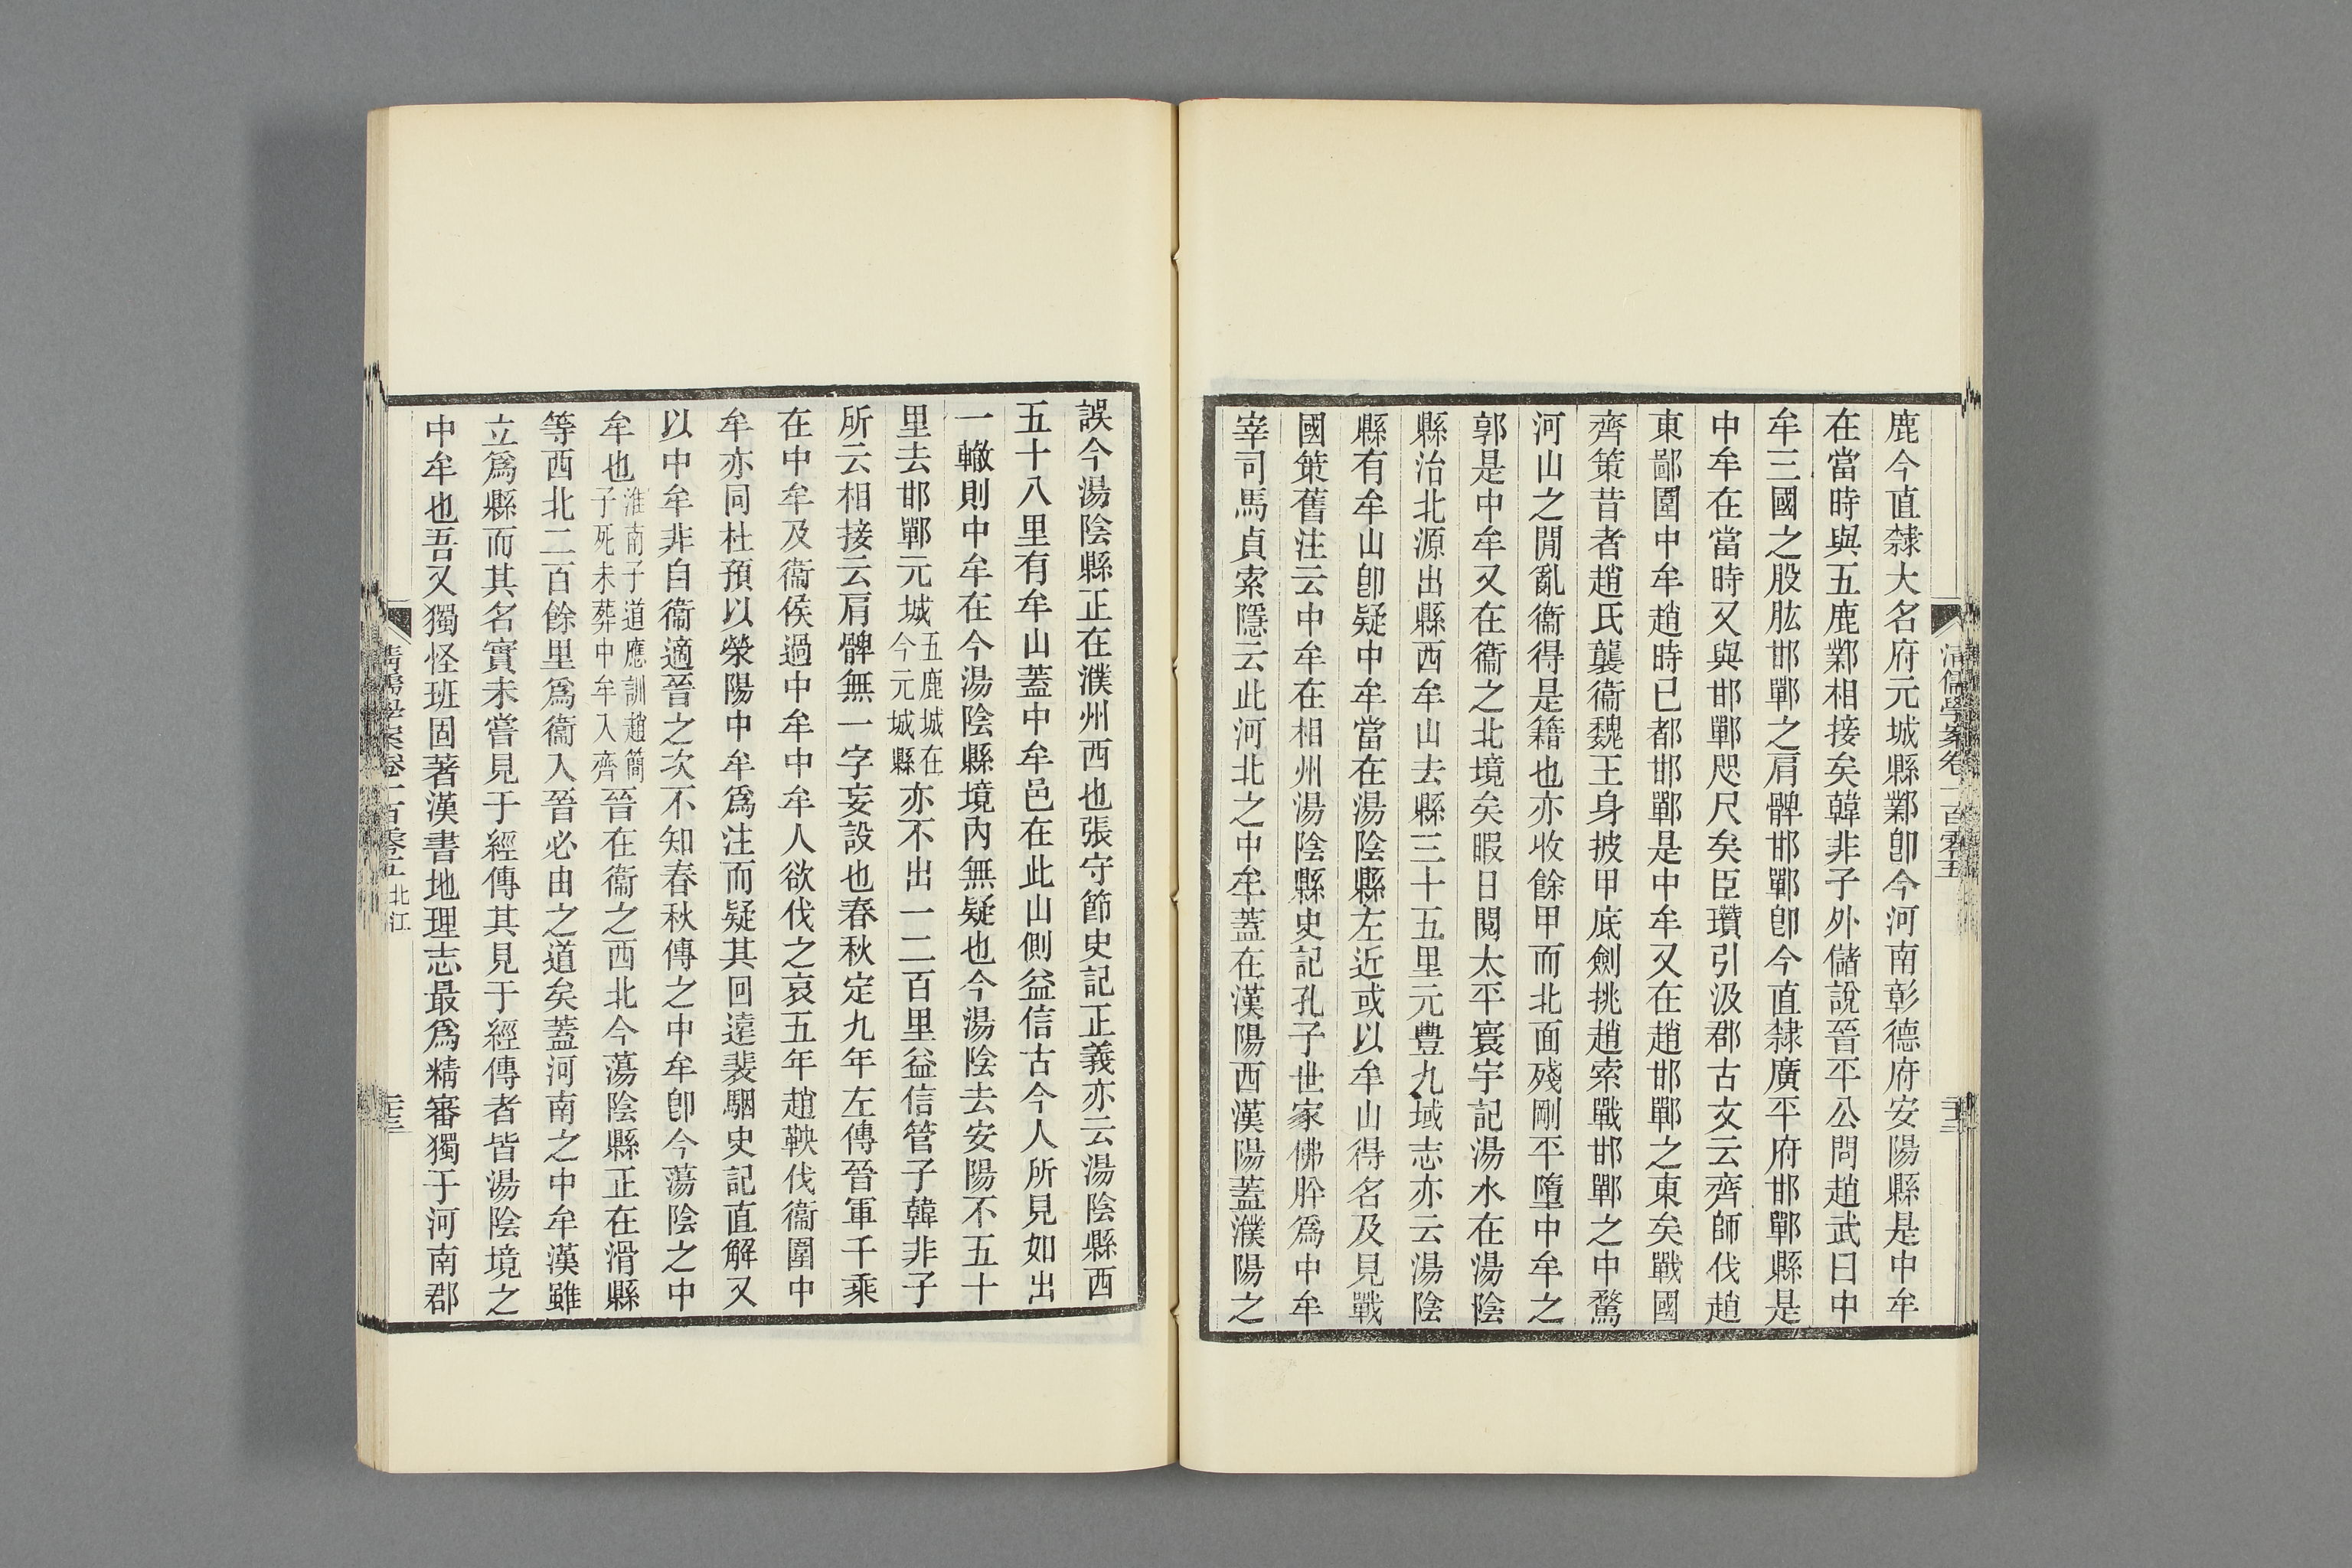 鹿今直隸大名府元城縣鄴卽今河南彰德府安陽縣是中牟
在當時與五鹿鄴相接矣韓非子外儲說晉平公問趙武曰中
牟三國之股肱邯鄲之肩髀邯鄲卽今直隸廣平府邯鄲縣是
中牟在當時又與邯鄲咫尺矣臣瓚引汲郡古文云齊師伐趙
東鄙圍中牟趙時已都邯鄲是中牟又在趙邯鄲之東矣戰國
齊策昔者趙氏襲衞魏王身披甲底劍挑趙索戰邯鄲之中騖
河山之閒亂衞得是籍也亦收餘甲而北面殘剛平墮中牟之
郭是中牟又在衞之北境矣暇日閱太平寰宇記湯水在湯陰
縣治北源出縣西牟山去縣三十五里元豐九域志亦云湯陰
縣有牟山卽疑中牟當在湯陰縣左近或以牟山得名及見戰
國策舊注云中牟在相州湯陰縣史記孔子世家佛肸爲中牟
宰司馬貞索隱云此河北之中牟蓋在漢陽西漢陽蓋濮陽之
清儒學案卷一百零五
誤今湯陰縣正在濮州西也張守節史記正義亦云湯陰縣西
五十八里有牟山蓋中牟邑在此山側益信古今人所見如出
一轍則中牟在今湯陰縣境內無疑也今湯陰去安陽不五十
里去邯鄲元城五鹿城在今元城縣亦不出一二百里益信管子韓非子
所云相接云肩髀無一字妄設也春秋定九年左傳晉軍千乘
在中牟及衞侯過中牟中牟人欲伐之哀五年趙鞅伐衞圍中
牟亦同杜預以滎陽中牟爲注而疑其回遠裴駰史記直解又
以中牟非自衞適晉之次不知春秋傳之中牟卽今蕩陰之中
牟也淮南子道應訓趙簡子死未葬中牟入齊晉在衞之西北今蕩陰縣正在滑縣
等西北二百餘里爲衞入晉必由之道矣蓋河南之中牟漢雖
立爲縣而其名實未嘗見于經傳其見于經傳者皆湯陰境之
中牟也吾又獨怪班固著漢書地理志最爲精審獨于河南郡
清儒學案卷一百零五 北江